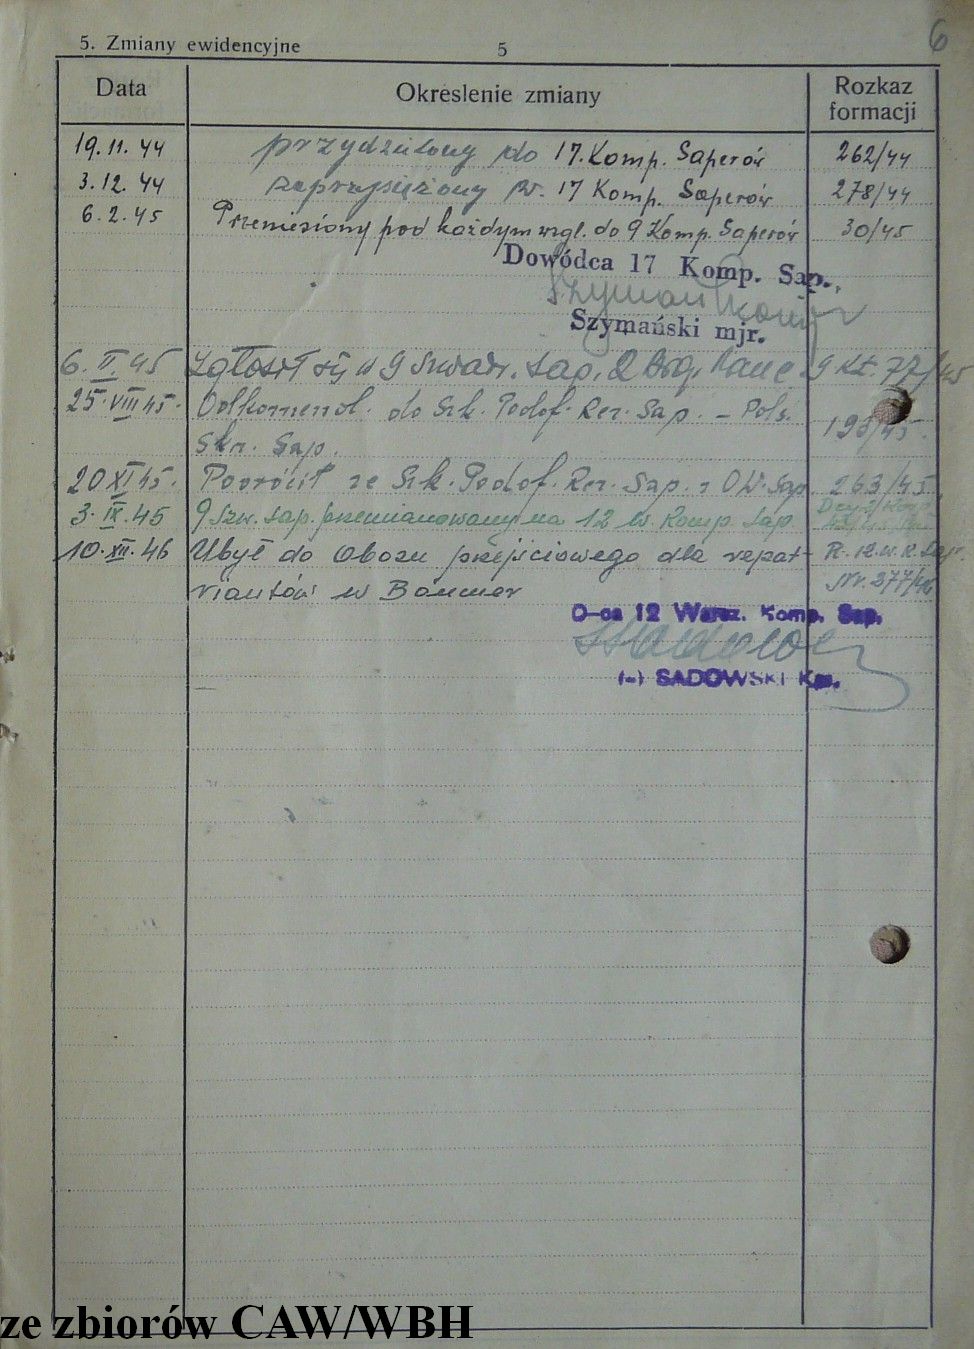 5. Zmiany ewidencyjne 5 6
Data Okreslenie zmiany Rozkaz formacji
19.11.44 przydzielony do 17. Komp. Saperów 262/44
3.12.44 zaprzysiężony w 17 Komp. Saperów 278/44
6.2.45 Przeniesiony pod każdym wzgl. do 9 Komp. Saperów 30/45
Dowódca 17 Komp. Sap.
Szymański mjr.
6.II.45 zgłosił się w 9 Szwadr. Sap. 2 Bryg. Panc. 77/45
25.VIII.45. Odkomend. do Szk. Podof. Rez. Sap. – 
Sap.
20 XI 45. Powrócił ze Szk. Podof. Rez. Sap. z OW. Sap. 263/45
3.IX.45 9 Szw. Sap. przemianowany na 12 W. Komp. Sap.
10.XII.46 Ubył do Obozu przejściowego dla repat- R. 12. W. K. Sap.
riantów w Nr. 277/46
D-ca 12 Warsz. Komp. Sap.
(-) SADOWSKI Kpt.
ze zbiorów CAW/WBH